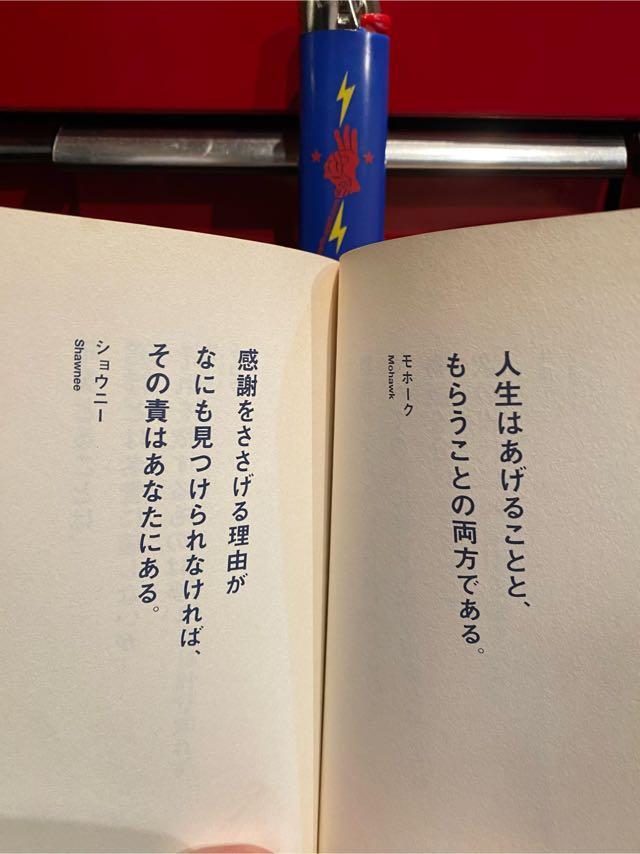 人生はあげることと、
もらうことの両方である。
モホーク
Mohawk
感謝をささげる理由が
なにも見つけられなければ、
その責はあなたにある。
ショウニー
Shawnee